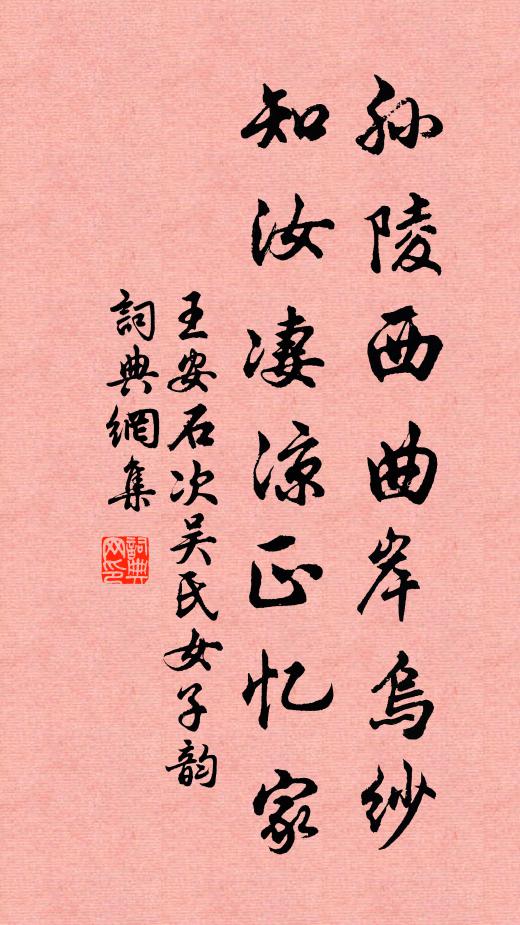 孙陵西曲岸乌纱
知汝凄凉正忆家
王安石次吴氏女子韵
詞典網集
詞典网印